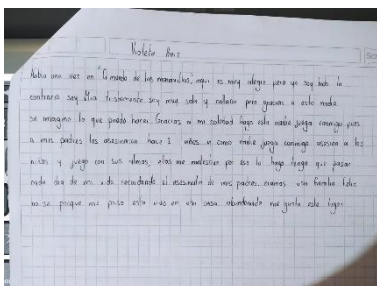 Violeta Ruiz
Había una vez en "El mundo de las maravillas", aquí es muy alegre pero yo soy todo lo
contrario soy Mia tristemente soy muy sola y callada pero gracias a esto nadie
se imagina lo que puedo hacer. Gracias a mi soledad hago esto nadie juega conmigo pues
a mis padres los asesinaron hace años y como nadie juega conmigo asesino a los
niños y juego con sus almas, ellos me molestan por eso lo hago tengo que pasar
cada día de mi vida recordando el asesinato de mis padres eramos una familia feliz
no se porque me paso esto vivo en una casa abandonada me gusta este lugar